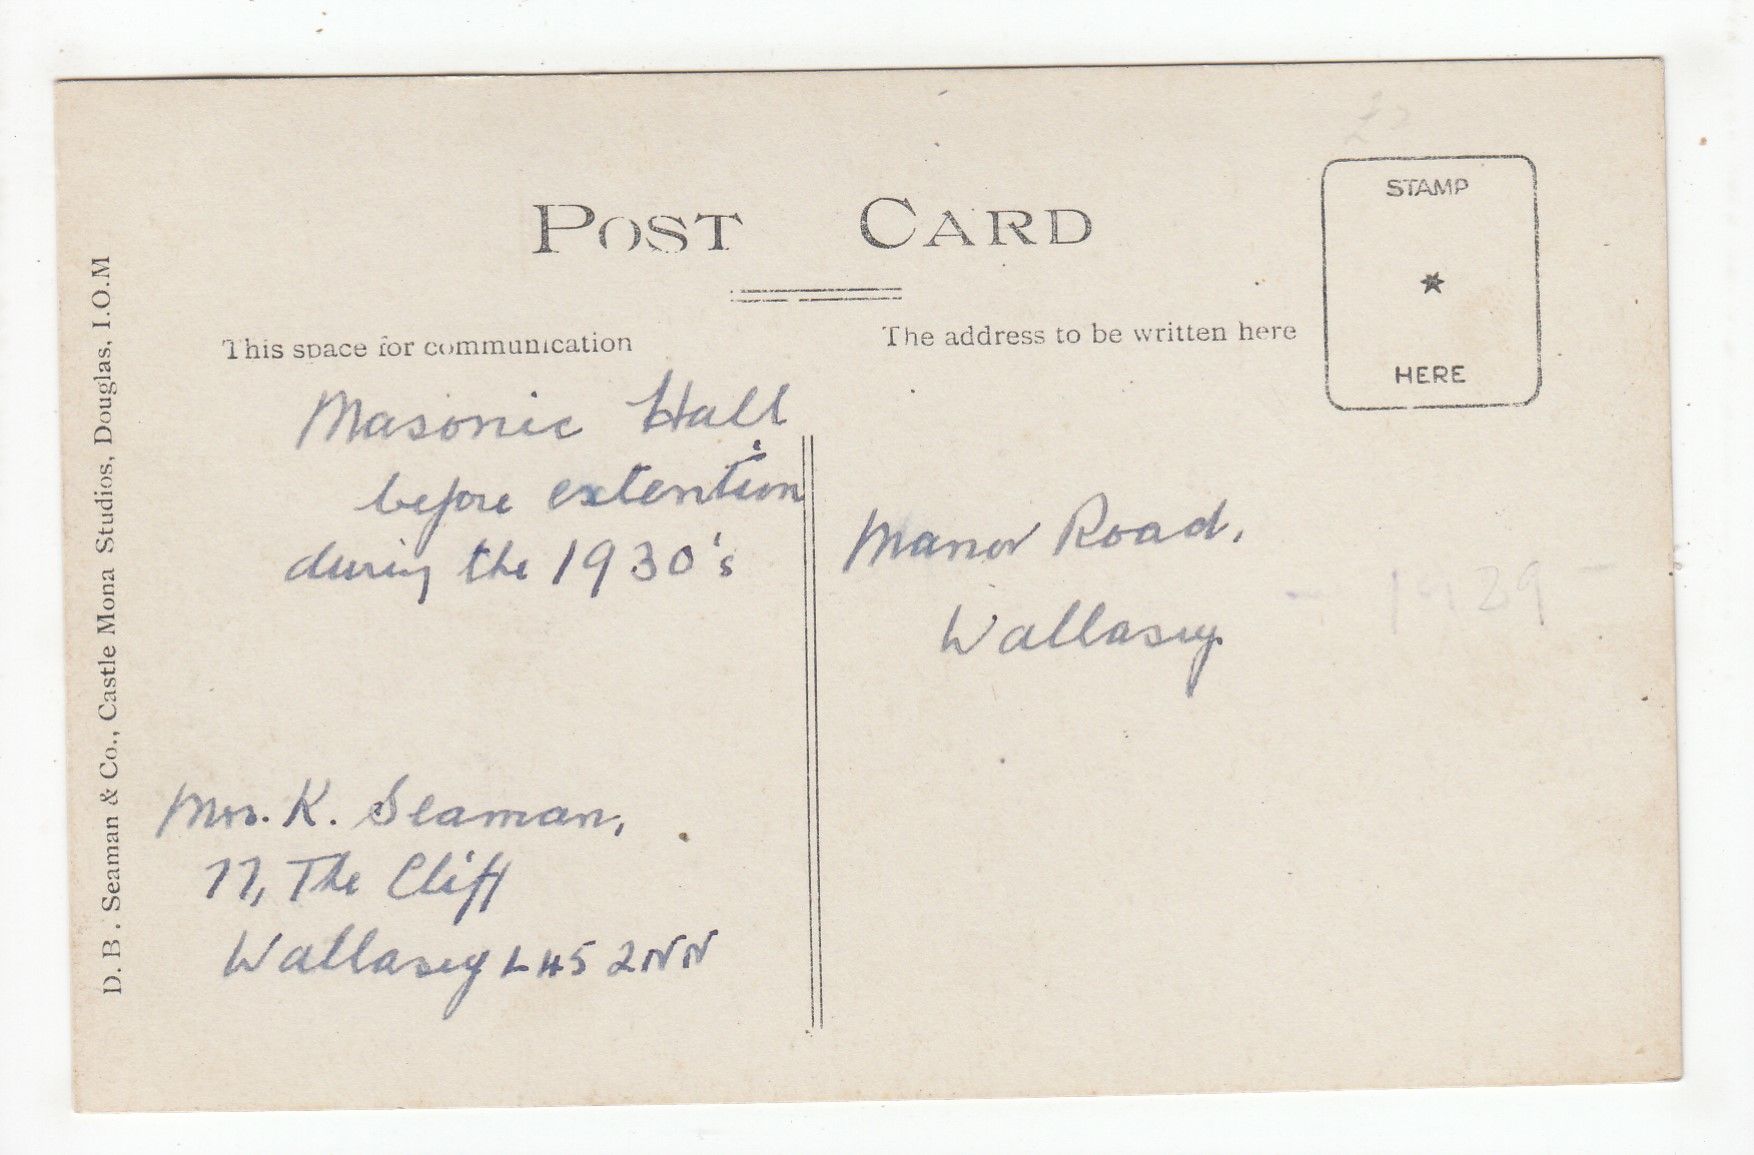 POST CARD
STAMP
HERE
This space for communication
The address to be written here
Masonic Hall
before extention
during the 1930's
Manor Road,
Wallasey
- 1929 -
Mrs. K. Seaman,
77, The Cliff
Wallasey L45 2NN
D. B. Seaman & Co., Castle Mona Studios, Douglas, I.O.M